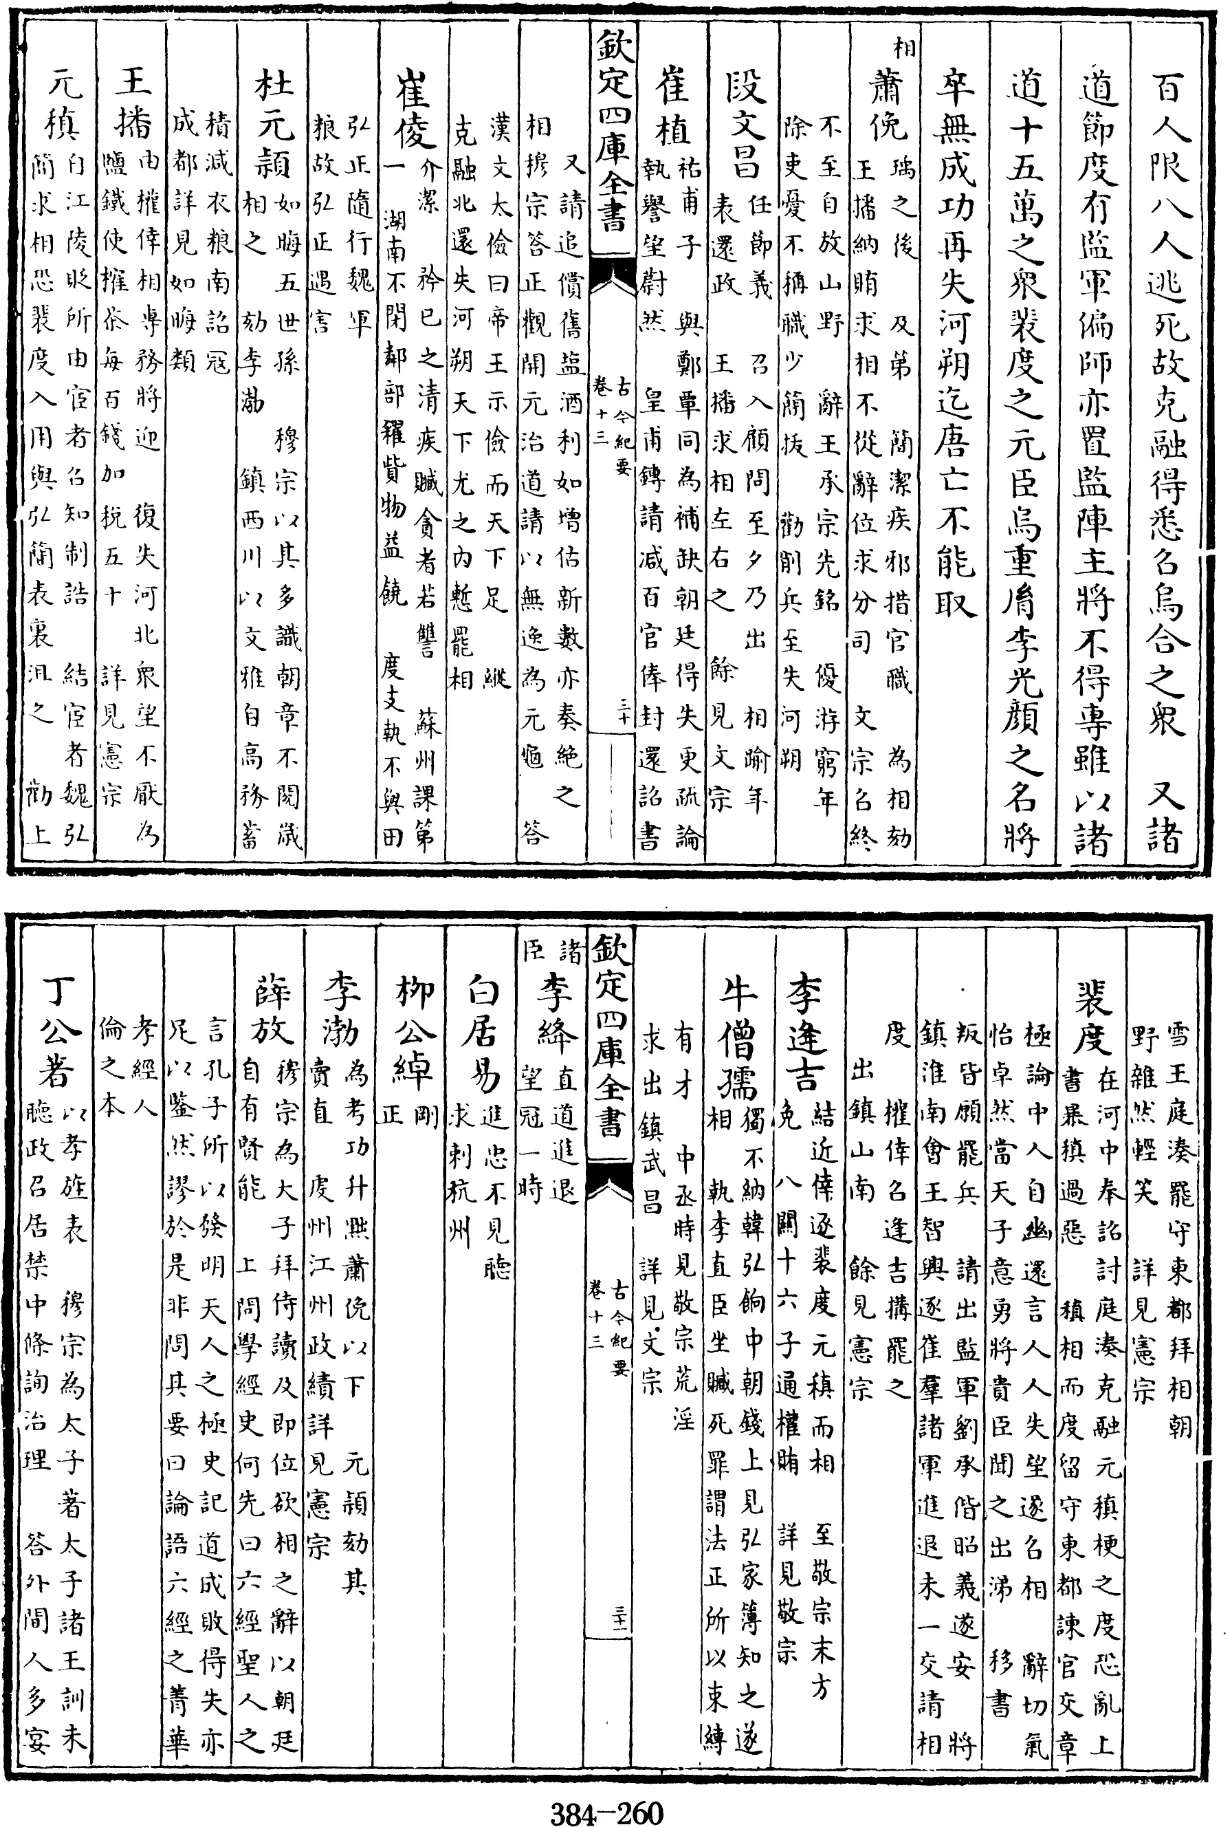 百人限八人逃死故克融得悉召烏合之衆　又諸
道節度有監軍偏師亦置監陣主將不得專雖以諸
道十五萬之衆裴度之元臣烏重胤李光顔之名將
卒無成功再失河朔迄唐亡不能取
相
蕭俛
瑀之後　及第　簡潔疾邪措官職　為相劾
王播納賄求相不從辭位求分司　文宗召終
不至自放山野　辭王承宗先銘　優游窮年
除吏憂不稱職少簡拔　勸削兵至失河朔
段文昌
任節義　召入顧問至夕乃出　相踰年
表還政　王播求相左右之　餘見文宗
崔植
祐甫子　與鄭覃同為補缺朝廷得失更疏論
執譽望蔚然　皇甫鏄請减百官俸封還詔書
欽定四庫全書
古今紀要
卷十三
三十
又請追償舊盐酒利如增估新數亦奏絶之
相　穆宗答正觀開元治道請以無逸為元龜　答
漢文太儉曰帝王示儉而天下足　縱
克融北還失河朔天下尤之内慙罷相
崔倰
介潔　矜已之清疾贓貪者若讐　蘇州課第
一　湖南不閉鄰部糴貲物益饒　度支執不與田
弘正隨行魏軍
粮故弘正遇害
杜元頴
如晦五世孫　穆宗以其多識朝章不閱歲
相之　劾李渤　鎮西川以文雅自高務蓄
積減衣粮南詔冦
成都詳見如晦類
王播
由權倖相專務將迎　復失河北衆望不厭為
鹽鐵使榷茶每百錢加稅五十　詳見憲宗
元稹
自江陵貶所由宦者召知制誥　結宦者魏弘
簡求相恐裴度入用與弘簡表裏沮之　勸上
雪王庭凑罷守東都拜相朝
野雜然輕笑　詳見憲宗
裴度
在河中奉詔討庭凑克融元稹梗之度恐亂上
書暴稹過惡　稹相而度留守東都諫官交章
極論中人自幽還言人人失望遂召相　辭切氣
怡卓然當天子意勇將貴臣聞之出涕　移書
叛皆願罷兵　請出監軍劉承偕昭義遂安　將
鎮淮南會王智興逐崔羣諸軍進退未一交請相
度　權倖召逢吉搆罷之
出鎮山南　餘見憲宗
李逢吉
結近倖逐裴度元稹而相　至敬宗末方
免　八關十六子通權賄　詳見敬宗
牛僧孺
獨不納韓弘餉中朝錢上見弘家簿知之遂
相　執李直臣坐贓死罪謂法正所以束縛
有才　中丞時見敬宗荒淫
求出鎮武昌　詳見文宗
欽定四庫全書
古今紀要
卷十三
三十一
諸
臣
李絳
直道進退
望冠一時
白居易
進忠不見聽
求刺杭州
柳公綽
剛
正
李渤
為考功升黜蕭俛以下　元頴劾其
賣直　虔州江州政績詳見憲宗
薛放
穆宗為大子拜侍讀及即位欲相之辭以朝廷
自有賢能　上問學經史何先曰六經聖人之
言孔子所以發明天人之極史記道成敗得失亦
足以鑒然謬於是非問其要曰論語六經之菁華
孝經人
倫之本
丁公著
以孝旌表　穆宗為太子著太子諸王訓未
聽政召居禁中條詢治理　答外間人多宴
384-260